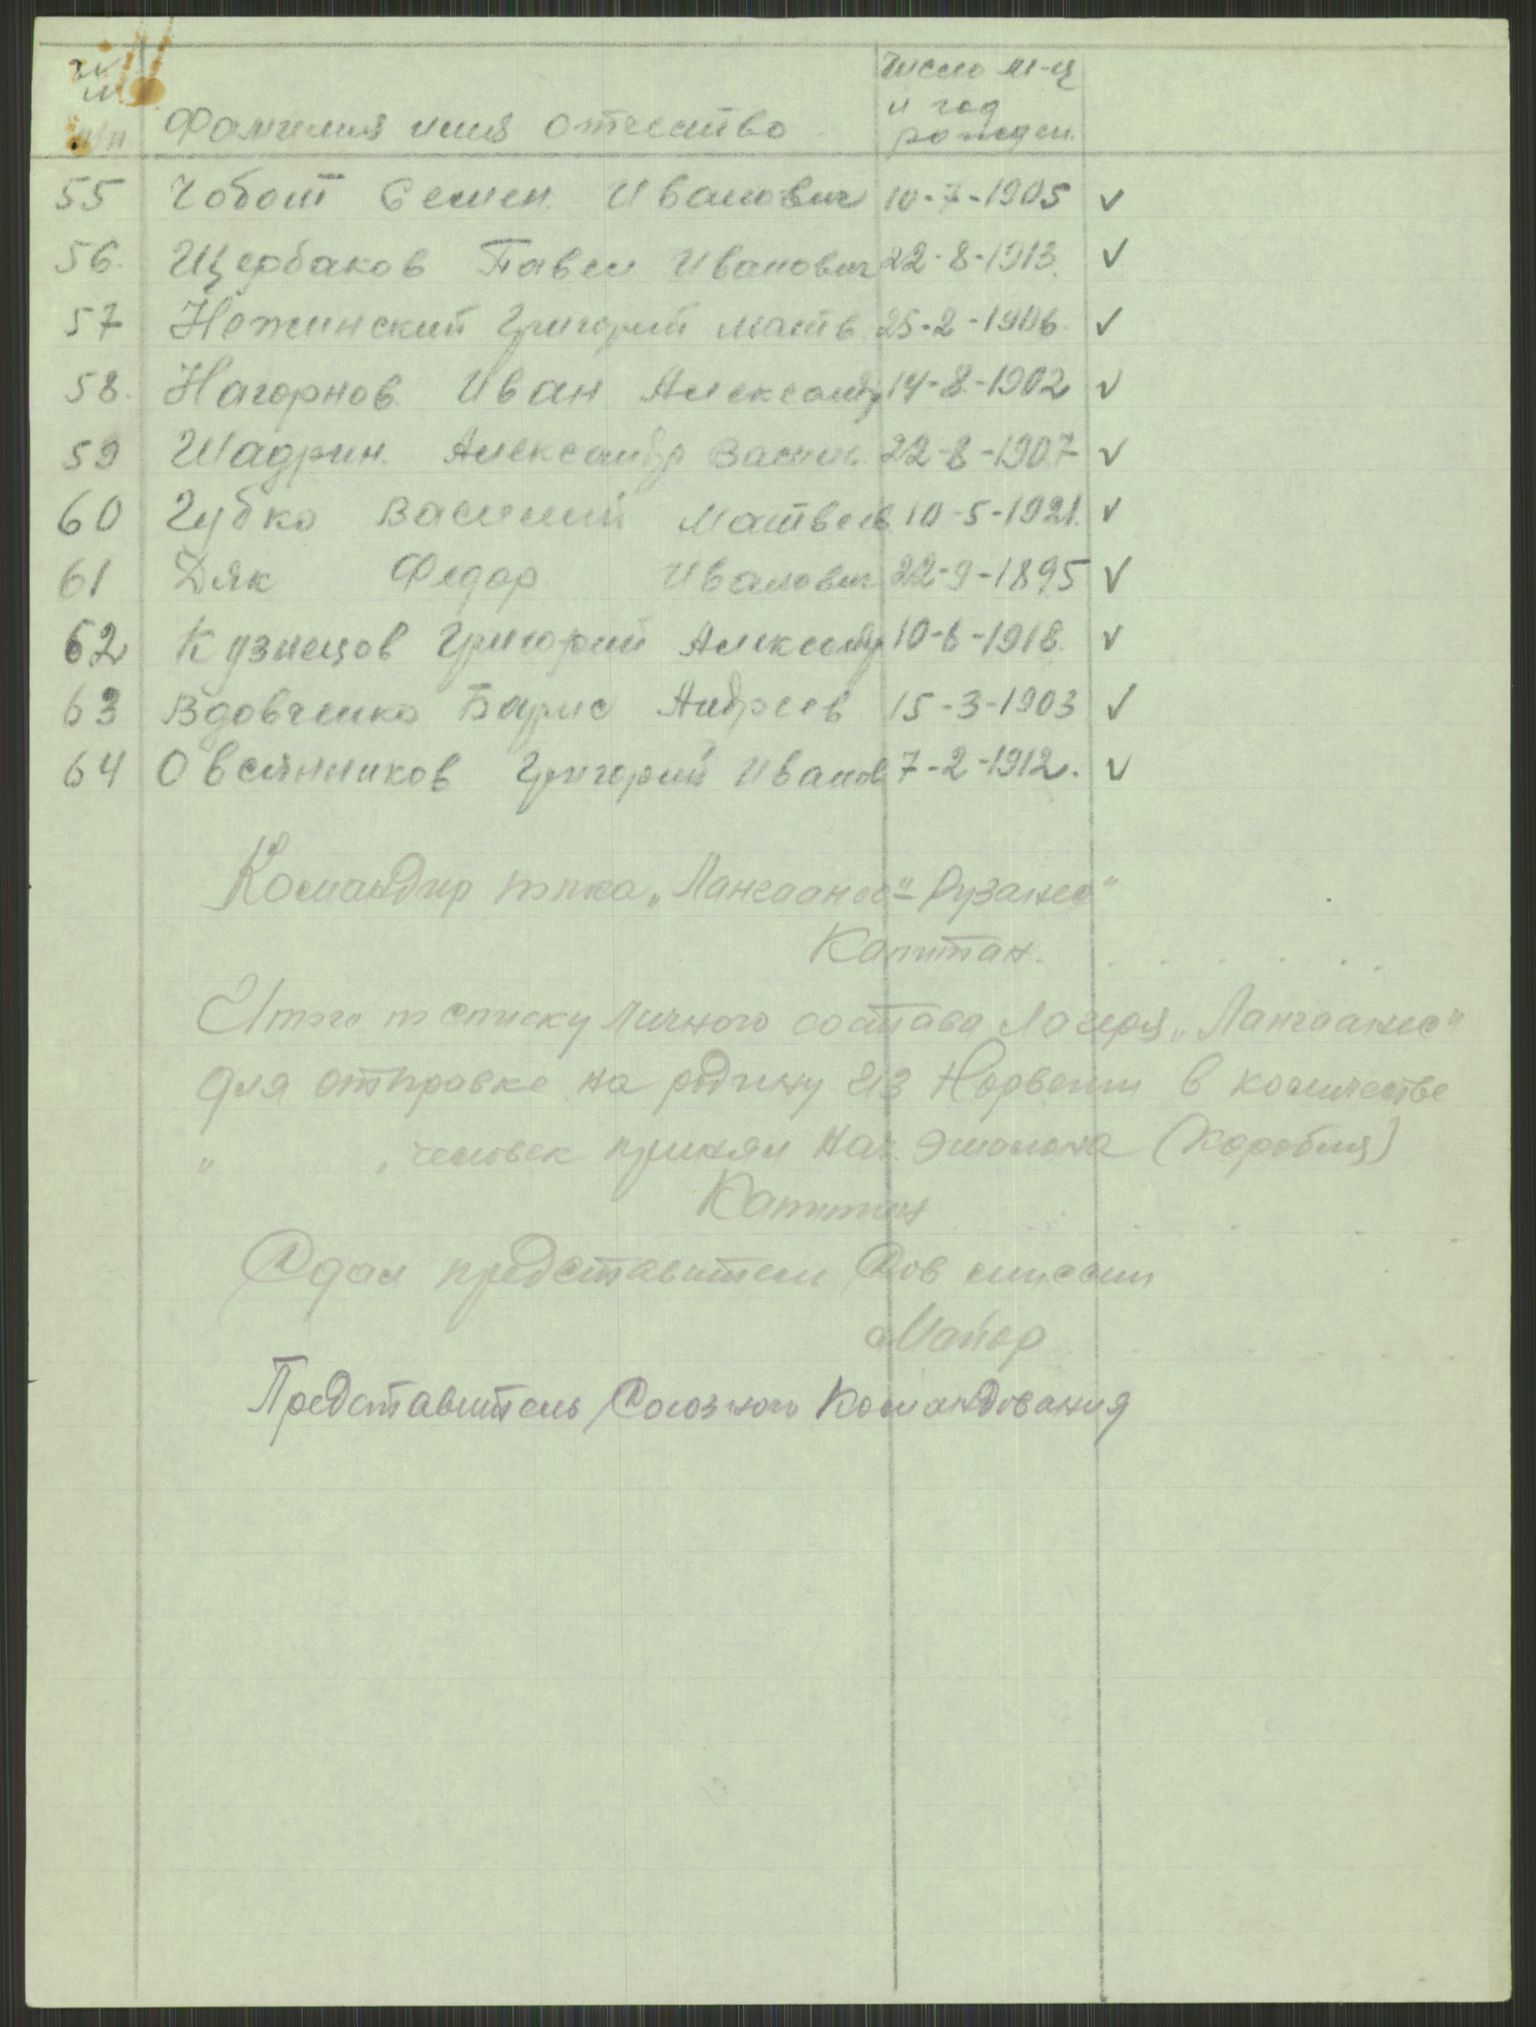 №
п/п Фамилия имя отчество Число м-ц
и год
рожден.
55 Чобот Семен Иванович 10-7-1905 ✓
56. Щербаков Павел Иванович 22-8-1913. ✓
57 Нежинский Григорий Матв 25-2-1906. ✓
58. Нагорнов Иван Александр 14-8-1902 ✓
59 Шадрин Александр Васил. 22-8-1907 ✓
60 Губко Василий Матвеев 10-5-1921. ✓
61 Дяк Федор Иванович 22-9-1895 ✓
62 Кузнецов Григорий Александр 10-6-1918. ✓
63 Вдовченко Борис Андреев 15-3-1903 ✓
64 Овсянников Григорий Иванов 7-2-1912. ✓
Командир "Лангоанес"
Капитан.
Итого по списку личного состава Лагеря "Лангоанес"
для отправке на родину из Норвегии в количестве
" " человек принял Нач. Эшолона (Корабля)
Капитан
Сдал представители Сов миссии
Майор
Представитель Союзного Командования